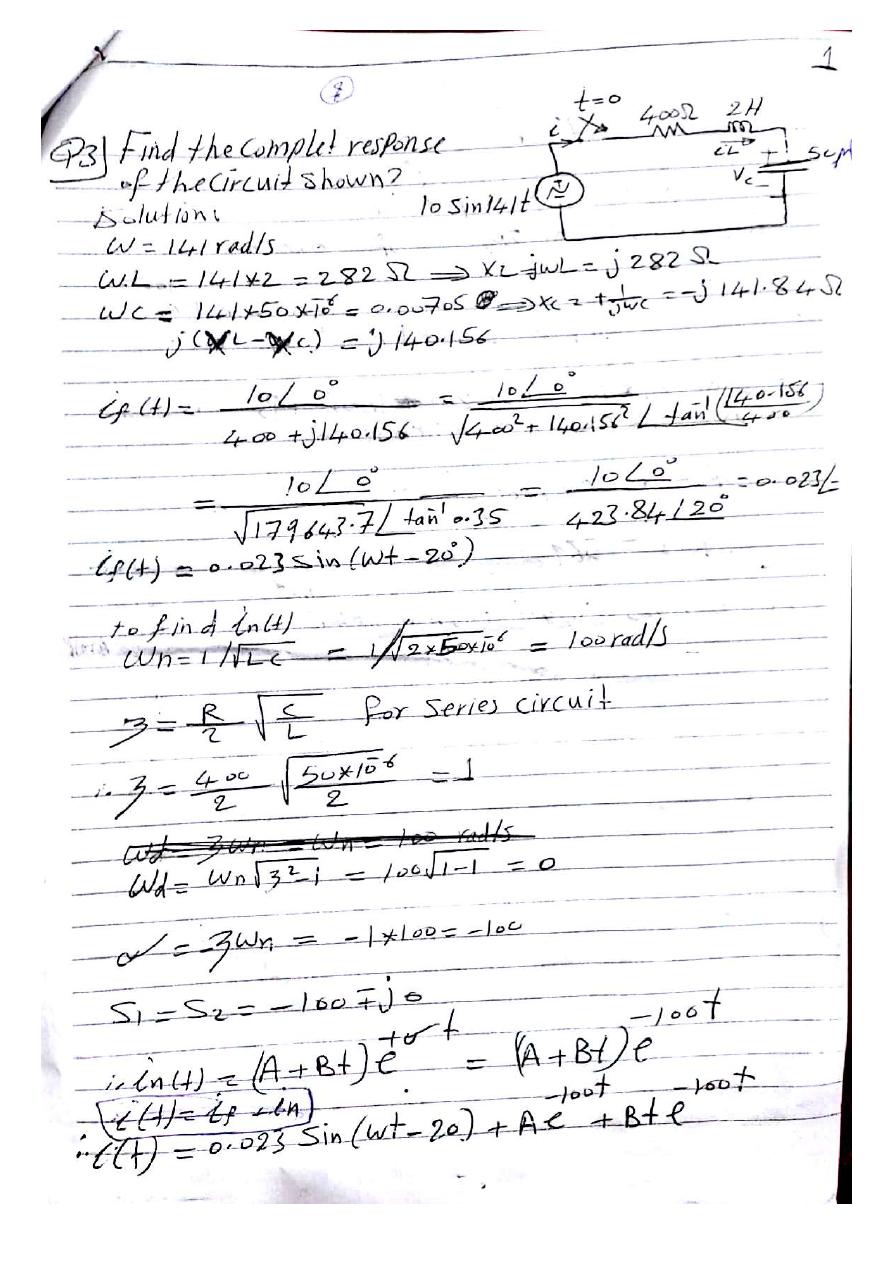 1
8
t=0
400Ω 2H
i
iL + 50μf
Vc -
Q3] Find the complet response
of the circuit shown?
10 sin141t
Solution:
W = 141 rad/s
W.L = 141*2 = 282 Ω ⟹ XL jwL = j282 Ω
WC = 141*50*10^-6 = 0.00705 ⟹ Xc = +1/jwc = -j 141.84Ω
j(XL-Xc) = j 140.156
if(t) = 10∠0° / 400+j140.156 = 10∠0° / √400²+140.156² ∠tan⁻¹(140.156/400)
= 10∠0° / √179643.7∠tan⁻¹0.35 = 10∠0° / 423.84∠20° = 0.023∠-
if(t) = 0.023 sin(wt-20°)
to find in(t)
Wn = 1/√LC = 1/√2*50*10^-6 = 100 rad/s
ʒ = R/2 √C/L for series circuit
∴ ʒ = 400/2 √50*10^-6/2 = 1
Wd = ʒwn = Wn = 100 rad/s
Wd = Wn√ʒ²-1 = 100√1-1 = 0
α = -ʒWn = -1*100 = -100
S1 = S2 = -100 ∓ j0
∴ in(t) = (A+Bt)e^+αt = (A+Bt)e^-100t
i(t) = if + in
∴ i(t) = 0.023 Sin(wt-20) + Ae^-100t + Bte^-100t